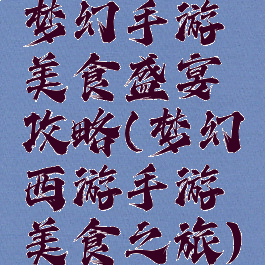 梦幻手游
美食盛宴
攻略(梦幻
西游手游
美食之旅)